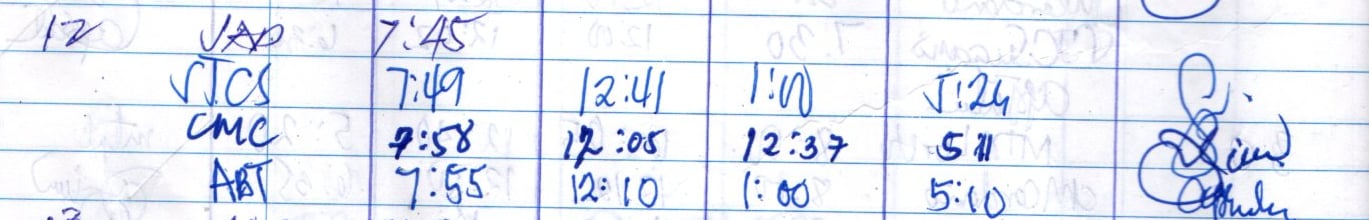 12 JAD 7:45
JTCS 7:49 12:41 1:00 5:24
CMC 7:58 12:05 12:37 5 11
ABT 7:55 12:10 1:00 5:10